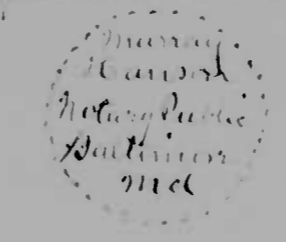 Murray
Hanson
Notary Public
Baltimore
Md